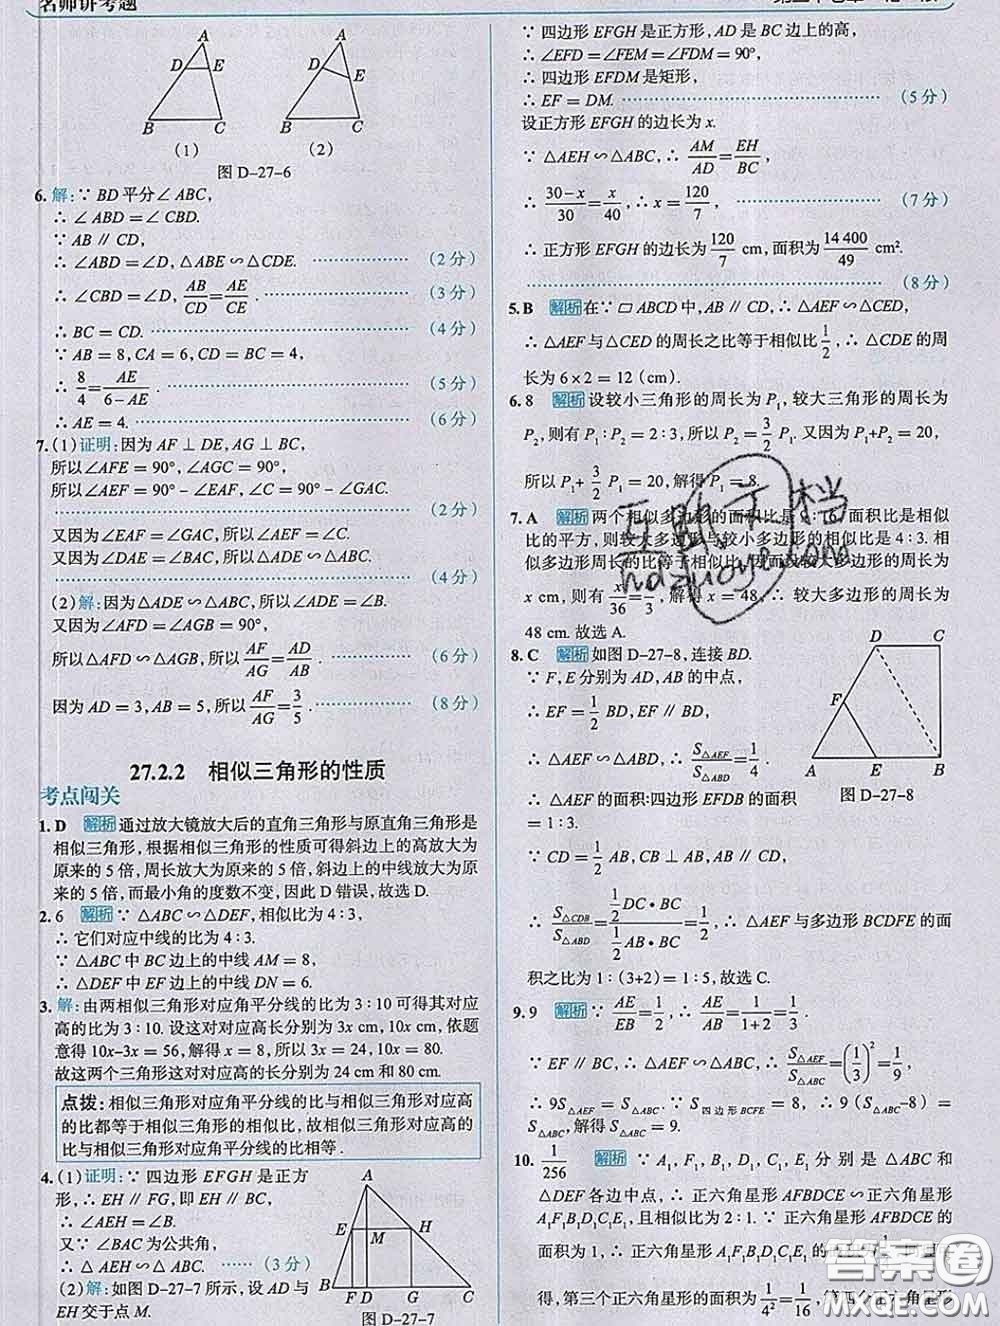 名师讲考题
A
D E
B C
(1)
A
D E
B C
(2)
图 D-27-6
6. 解:∵ BD 平分∠ABC,
∴ ∠ABD=∠CBD.
∵ AB∥CD,
∴ ∠ABD=∠D,△ABE∽△CDE. (2分)
∴ ∠CBD=∠D, AB/CD=AE/CE. (3分)
∴ BC=CD. (4分)
∵ AB=8,CA=6,CD=BC=4,
∴ 8/4=AE/(6-AE). (5分)
∴ AE=4. (6分)
7. (1)证明:因为 AF⊥DE,AG⊥BC,
所以∠AFE=90°,∠AGC=90°,
所以∠AEF=90°-∠EAF,∠C=90°-∠GAC.
(2分)
又因为∠EAF=∠GAC,所以∠AEF=∠C.
又因为∠DAE=∠BAC,所以△ADE∽△ABC.
(4分)
(2)解:因为△ADE∽△ABC,所以∠ADE=∠B.
又因为∠AFD=∠AGB=90°,
所以△AFD∽△AGB,所以 AF/AG=AD/AB. (6分)
因为 AD=3,AB=5,所以 AF/AG=3/5. (8分)
27.2.2 相似三角形的性质
考点闯关
1. D 解析 通过放大镜放大后的直角三角形与原直角三角形是
相似三角形,根据相似三角形的性质可得斜边上的高放大为
原来的 5 倍,周长放大为原来的 5 倍,斜边上的中线放大为原
来的 5 倍,而最小角的度数不变,因此 D 错误,故选 D.
2. 6 解析 ∵ △ABC∽△DEF,相似比为 4∶3,
∴ 它们对应中线的比为 4∶3.
∵ △ABC 中 BC 边上的中线 AM=8,
∴ △DEF 中 EF 边上的中线 DN=6.
3. 解:由两相似三角形对应角平分线的比为 3∶10 可得其对应
高的比为 3∶10. 设这对对应高长分别为 3x cm,10x cm,依题
意得 10x-3x=56,解得 x=8,所以 3x=24,10x=80.
故这两个三角形这对对应高的长分别为 24 cm 和 80 cm.
点拨:相似三角形对应角平分线的比与相似三角形对应高
的比都等于相似三角形的相似比,故相似三角形对应高的
比与相似三角形对应角平分线的比相等.
4. (1)证明:∵ 四边形 EFGH 是正方
形,∴ EH∥FG,即 EH∥BC,
∴ ∠AEH=∠B.
又∵ ∠BAC 为公共角,
∴ △AEH∽△ABC. (3分)
(2)解:如图 D-27-7 所示,设 AD 与
EH 交于点 M.
A
E M H
B F D G C
图 D-27-7
∵ 四边形 EFGH 是正方形,AD 是 BC 边上的高,
∴ ∠EFD=∠FEM=∠FDM=90°,
∴ 四边形 EFDM 是矩形,
∴ EF=DM. (5分)
设正方形 EFGH 的边长为 x.
∵ △AEH∽△ABC,∴ AM/AD=EH/BC,
∴ (30-x)/30=x/40,∴ x=120/7, (7分)
∴ 正方形 EFGH 的边长为 120/7 cm,面积为 14 400/49 cm².
(8分)
5. B 解析 在∵ ▱ABCD 中,AB∥CD,∴ △AEF∽△CED,
∴ △AEF 与△CED 的周长之比等于相似比 1/2,∴ △CDE 的周
长为 6×2=12 (cm).
6. 8 解析 设较小三角形的周长为 P₁,较大三角形的周长为
P₂,则有 P₁∶P₂=2∶3,所以 P₂=3/2 P₁. 又因为 P₁+P₂=20,
所以 P₁+3/2 P₁=20,解得 P₁=8.
7. A 解析 两个相似多边形的面积比是 9∶16,面积比是相似
比的平方,则较大多边形与较小多边形的相似比是 4∶3. 相
似多边形周长的比等于相似比,因而设较大多边形的周长为
x cm,则有 x/36=4/3,解得 x=48,∴ 较大多边形的周长为
48 cm. 故选 A.
8. C 解析 如图 D-27-8,连接 BD.
∵ F,E 分别为 AD,AB 的中点,
∴ EF=1/2 BD,EF∥BD,
∴ △AEF∽△ABD,∴ S△AEF/S△ABD=1/4,
∴ △AEF 的面积∶四边形 EFDB 的面积
=1∶3.
D C
F
A E B
图 D-27-8
∵ CD=1/2 AB,CB⊥AB,CB⊥DC,
∴ S△CDB/S△ABD=(1/2 DC·BC)/(1/2 AB·BC)=1/2,∴ △AEF 与多边形 BCDFE 的面
积之比为 1∶(3+2)=1∶5,故选 C.
9. 9 解析 ∵ AE/EB=1/2,∴ AE/AB=1/(1+2)=1/3.
∵ EF∥BC,∴ △AEF∽△ABC,∴ S△AEF/S△ABC=(1/3)²=1/9,
∴ 9S△AEF=S△ABC. ∵ S四边形BCFE=8,∴ 9(S△ABC-8)=
S△ABC,解得 S△ABC=9.
10. 1/256 解析 ∵ A₁,F₁,B₁,D₁,C₁,E₁ 分别是△ABC 和
△DEF 各边中点,∴ 正六角星形 AFBDCE∽正六角星形
A₁F₁B₁D₁C₁E₁,且相似比为 2∶1. ∵ 正六角星形 AFBDCE 的
面积为 1,∴ 正六角星形 A₁F₁B₁D₁C₁E₁ 的
得,第三个正六角星形的面积为 1/4²=1/16,第四个正六角星形
hdzuoye.com
答案圈
MXQE.COM